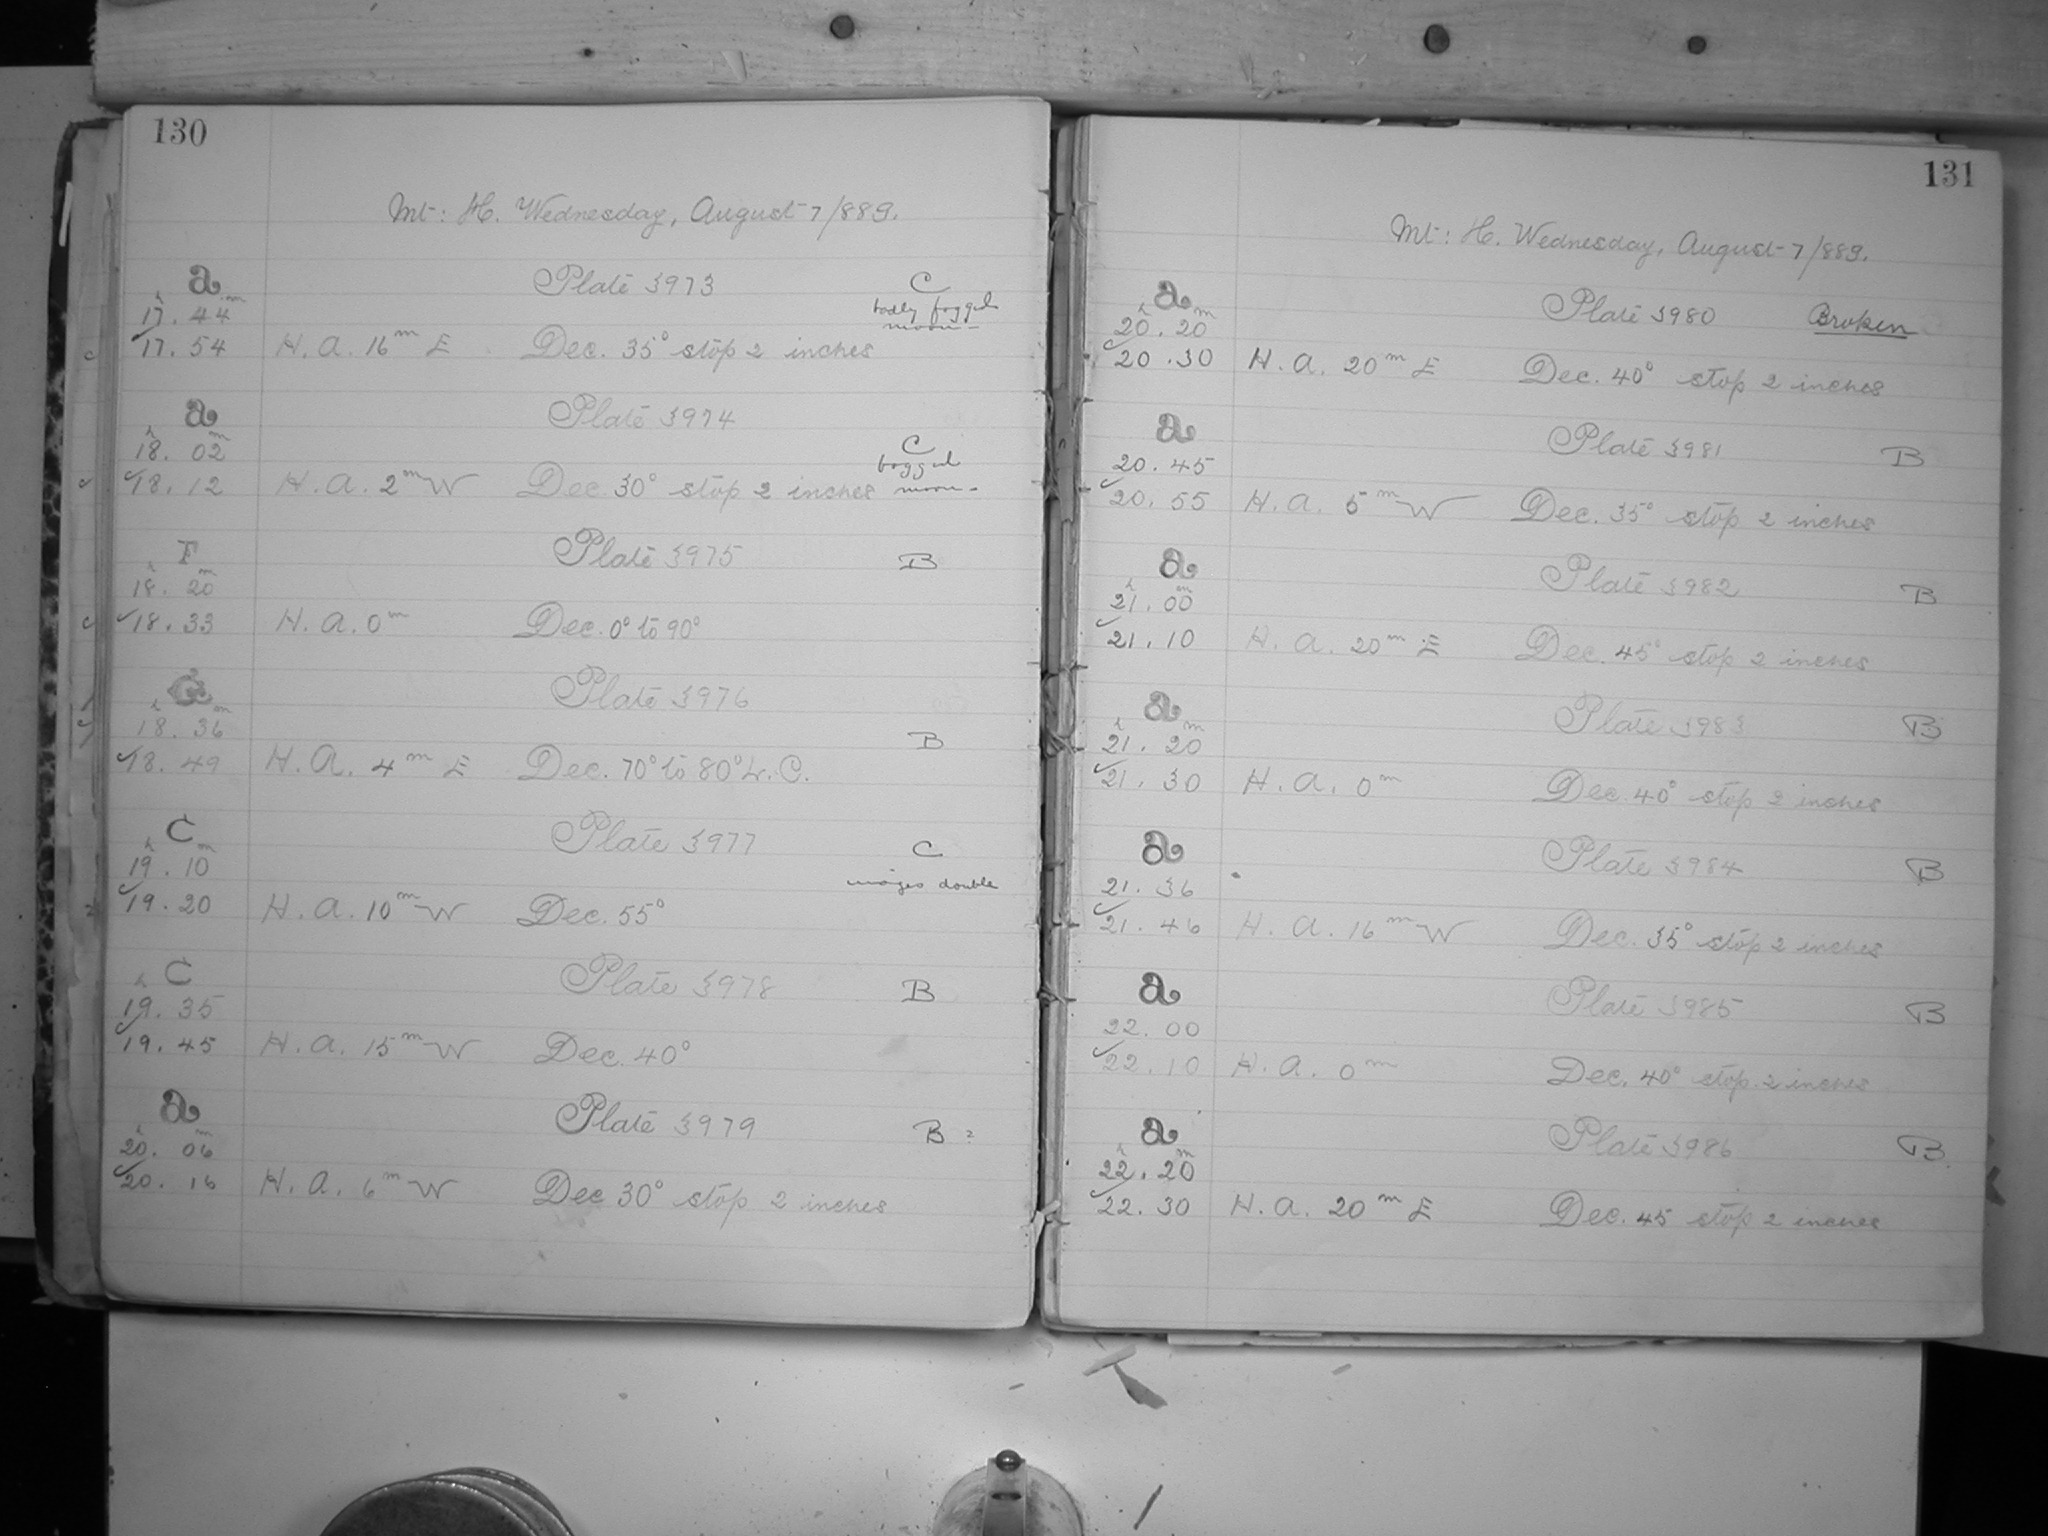 130
Mt: H. Wednesday, August 7/889.
a Plate 3973 C
17h. 44m badly fogged
moon
17. 54 H. A. 16m E Dec. 35° stop 2 inches
a Plate 3974
18h. 02m C
fogged
18. 12 H. A. 2m W Dec. 30° stop 2 inches moon
F Plate 3975 B
18h. 20m
18. 33 H. A. 0m Dec. 0° to 90°
G Plate 3976
18h. 36m B
18. 49 H. A. 4m E Dec. 70° to 80° L. C.
C Plate 3977 C
19h. 10m images double
19. 20 H. A. 10m W Dec. 55°
C Plate 3978 B
19h. 35
19. 45 H. A. 15m W Dec. 40°
a Plate 3979 B ?
20h. 06m
20. 16 H. A. 6m W Dec 30° stop 2 inches
131
Mt: H. Wednesday, August 7/889.
a Plate 3980 Broken
20h. 20m
20. 30 H. A. 20m E Dec. 40° stop 2 inches
a Plate 3981 B
20. 45
20. 55 H. A. 5m W Dec. 35° stop 2 inches
a Plate 3982 B
21h. 00m
21. 10 H. A. 20m E Dec. 45° stop 2 inches
a Plate 3983 B
21h. 20m
21. 30 H. A. 0m Dec. 40° stop 2 inches
a Plate 3984 B
21. 36
21. 46 H. A. 16m W Dec. 35° stop 2 inches
a Plate 3985 B
22. 00
22. 10 H. A. 0m Dec. 40° stop 2 inches
a Plate 3986 B
22h. 20m
22. 30 H. A. 20m E Dec. 45 stop 2 inches